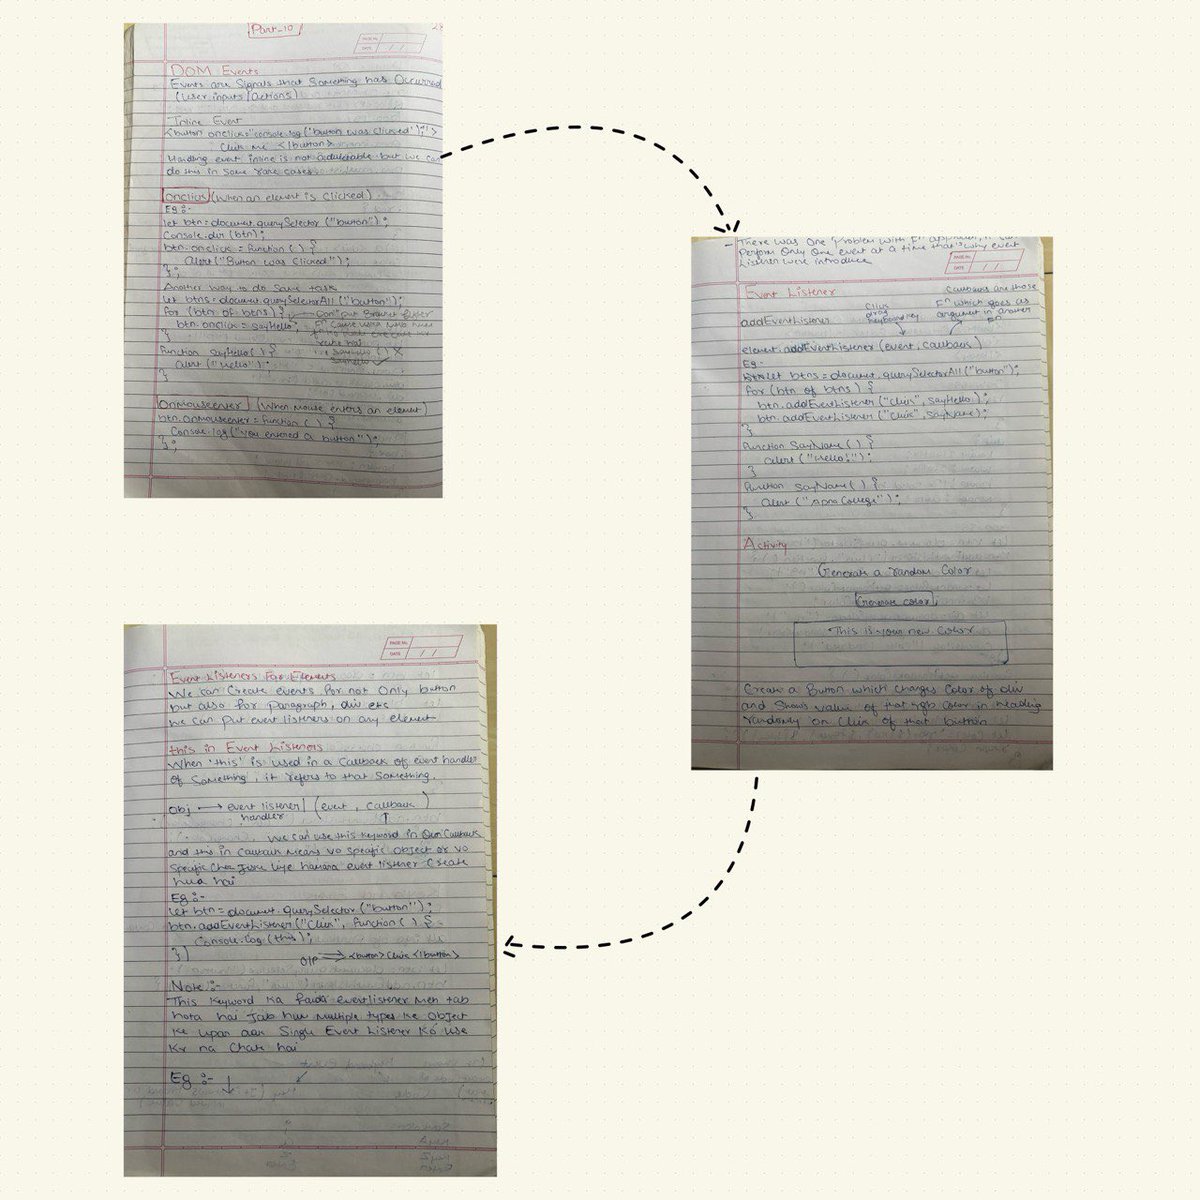 Part-10
PAGE No.
DATE
DOM Events
Events are Signals that Something has Occurred
(User inputs/Actions)
Inline Event
<button onclick="console.log('button was clicked');">
Click Me </button>
Handling event inline is not
but we can
do this in some rare cases
onclick (When an element is Clicked)
Eg :-
let btn = document.querySelector("button");
Console.dir(btn);
btn.onclick = function () {
Alert("Button was Clicked");
};
Another way to do Same task
let btns = document.querySelectorAll("button");
for (btn of btns) {
btn.onclick = sayHello;
}
function sayHello() {
Alert("Hello");
}
OnMouseenter (When Mouse enters an element)
btn.onMouseenter = function () {
Console.log("You entered a button");
};
There was One Problem with Fn
Perform Only One event at a time that's why event
Listener were introduce
PAGE No.
DATE
Event Listener
Callbacks are those
Fn which goes as
argument in another
Fn
addEventListener
element.addEventListener(event, callback)
Eg -
let btns = document.querySelectorAll("button");
for (btn of btns) {
btn.addEventListener("click", sayHello);
btn.addEventListener("click", sayName);
}
function SayName () {
alert("Hello!");
}
function SayName() {
alert("Apna College");
}
Activity
Generate a random Color
Generate color
This is your new Color
Create a Button which changes Color of div
and Shows value of that rgb color in heading
randomly on Click of that button
PAGE No.
DATE
Event Listeners For Elements
We can Create events for not Only button
but also for Paragraph, div etc
We can put event listeners on any element
this in Event Listeners
When 'this' is used in a Callback of event handler
of Something, it refers to that Something.
Obj → event listener (event, callback)
handler
We can use this keyword in Our Callback
and this in Callback Means vo Specific Object or vo
Specific Cheez Jiske liye hamara event listener Create
hua hai
Eg :-
let btn = document.querySelector("button");
btn.addEventListener("click", function () {
Console.log(this);
})
O/P → <button>Click</button>
Note :-
This Keyword Ka faida eventlistener Meh tab
hota hai Jab hum Multiple types ke Object
Ke upar aak Single Event Listener Ko Use
Kr na Chate hai
Eg :-